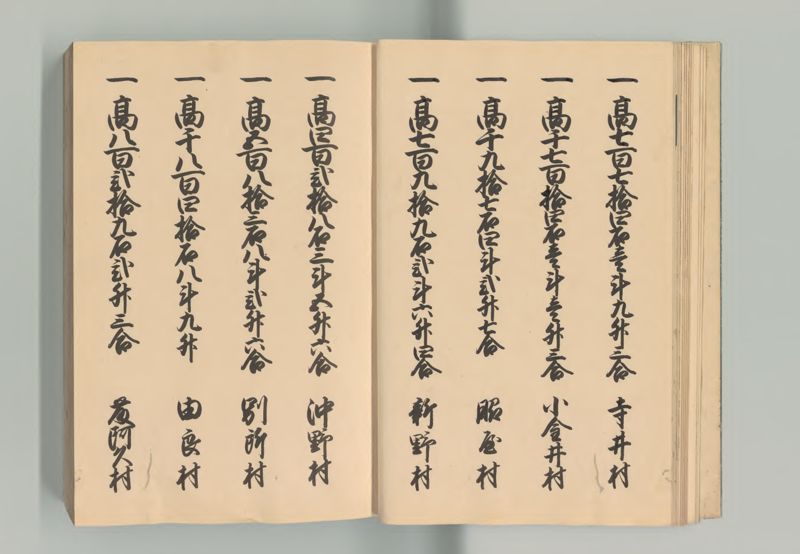 一高七百七拾四石壱斗九升三合 寺井村
一高千七百拾四石壱斗壱升三合 小金井村
一高千九拾七石四斗弐升七合 脇屋村
一高七百九拾九石弐斗六升四合 新野村
一高四百弐拾八石三斗五升六合 沖野村
一高五百八拾三石八斗弐升六合 別所村
一高千八百四拾石八斗九升 由良村
一高八百弐拾九石弐升三合 藤阿久村